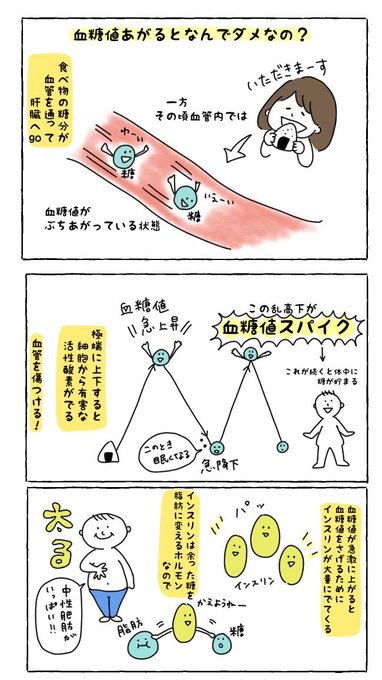 血糖値あがるとなんでダメなの？
いただきまーす
食べ物の糖分が
血管を通って
肝臓へ
go
一方
その頃血管内では
わーい
糖
いえーい
糖
血糖値が
ぶちあがっている状態
この乱高下が
血糖値スパイク
血糖値
急上昇
極端に上下すると
細胞から有害な
活性酸素がでる
血管を傷つける！
これが続くと体中に
糖が貯まる
このとき
眠くなる
急降下
血糖値が急激に上がると
血糖値をさげるために
インスリンが大量にでてくる
パッ
インスリン
インスリンは余った糖を
脂肪に変えるホルモン
なので
かえようねー
脂肪
糖
太る
中性肥肪が
いっぱい!!